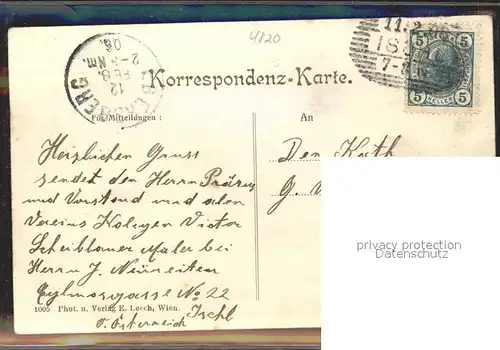 4820
11.2
18
7-8
5 5
5 HELLER 5
BERG
12
FEB.
2-3 Nm.
06.
Korrespondenz-Karte.
Für Mitteilungen :
An
Herzlichen Gruss
sendet den Herrn Präses
und Vorstand und allen
Vereins Kolegen Victor
Scheiblauer Maler bei
Herrn J.
No 22
Ischl
Österreich
Dem Kath
G.
privacy protection
Datenschutz
1005 Phot. u. Verlag E. Lorch, Wien.